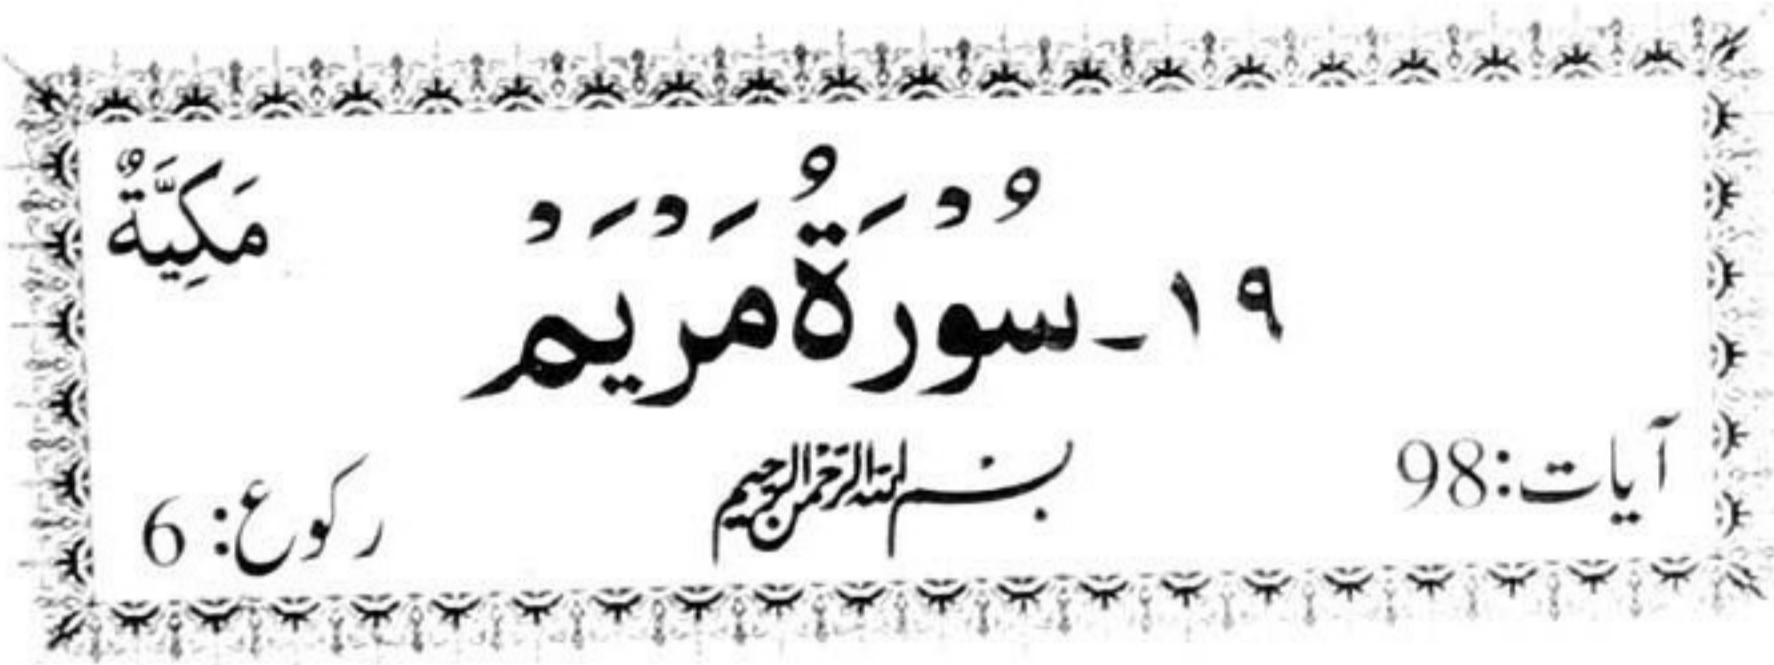 مَكِيَّةٌ
١٩ـ سُوْرَةُ مَرْيَمْ
آیات: 98
بِسْمِ اللهِ الرَّحْمٰنِ الرَّحِيمِ
رکوع: 6